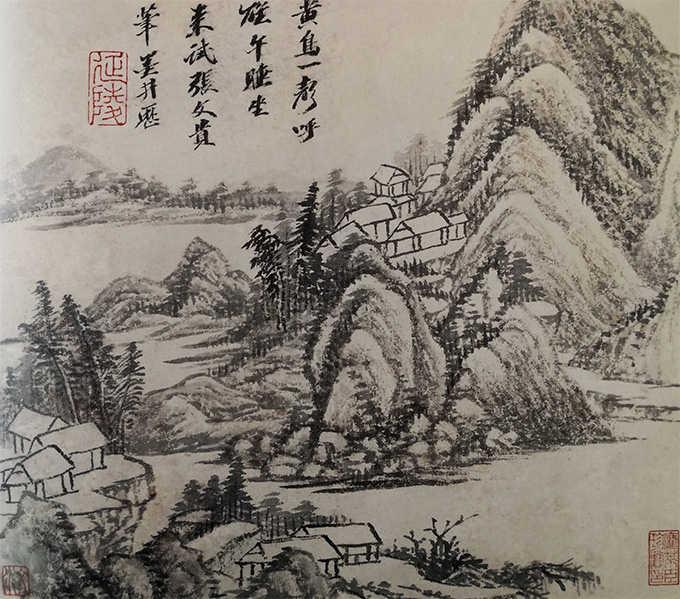 黃鳥一聲呼
醒午睡坐
來試張文貴
筆墨井歷
延陵